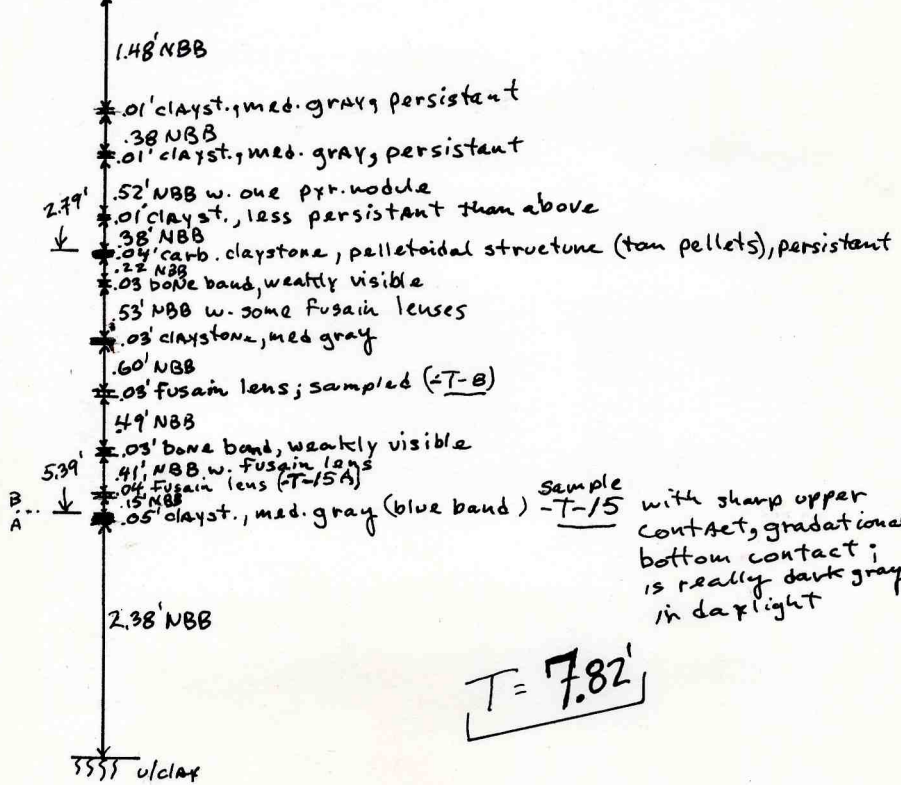 1.48' NBB
.01' clayst., med. gray, persistant
.38 NBB
.01' clayst., med. gray, persistant
.52' NBB w. one pyr. nodule
2.79'
.01' clayst., less persistant than above
.38' NBB
.04' carb. claystone, pelletoidal structure (tan pellets), persistant
.22 NBB
.03 bone band, weakly visible
.53' NBB w. some fusain lenses
.03' claystone, med gray
.60' NBB
.03' fusain lens; sampled (-T-B)
.49' NBB
.03' bone band, weakly visible
5.39'
.41' NBB w. fusain lens
.04 fusain lens (-T-15A)
.15' NBB
B
A
.05' clayst., med. gray (blue band) sample -T-15 with sharp upper
contact, gradational
bottom contact;
is really dark gray
in daylight
2.38' NBB
T = 7.82'
u/clay